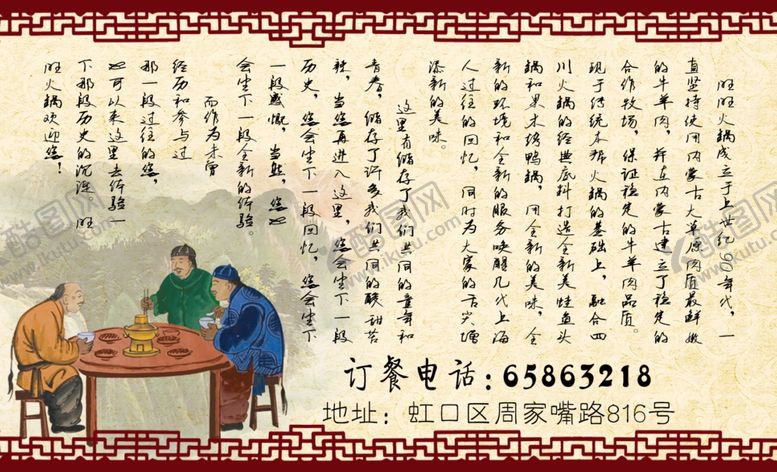 旺旺火锅成立于上世纪90年代，一
直坚持使用内蒙古大草原肉质最鲜嫩
的牛羊肉，并在内蒙古建立了稳定的
合作牧场，保证稳定的牛羊肉品质。
现于传统本帮火锅的基础上，融合四
川火锅的经典底料打造全新美蛙鱼头
锅和果木烤鸭锅，用全新的美味，全
新的环境和全新的服务唤醒几代上海
人过往的回忆，同时为大家的舌尖增
添新的美味。
这里有储存了我们共同的童年和
青春，储存了许多我们共同的酸甜苦
辣，当您再进入这里，您会坐下一段
历史，您会坐下一段回忆，您会坐下
一段感慨，当然，您也
会坐下一段全新的体验。
而作为未曾
经历和参与过
那一段过往的您，
也可以来这里去体验一
下那段历史的沉淀。旺
旺火锅欢迎您！
订餐电话：65863218
地址：虹口区周家嘴路816号
酷图网
www.ikutu.com